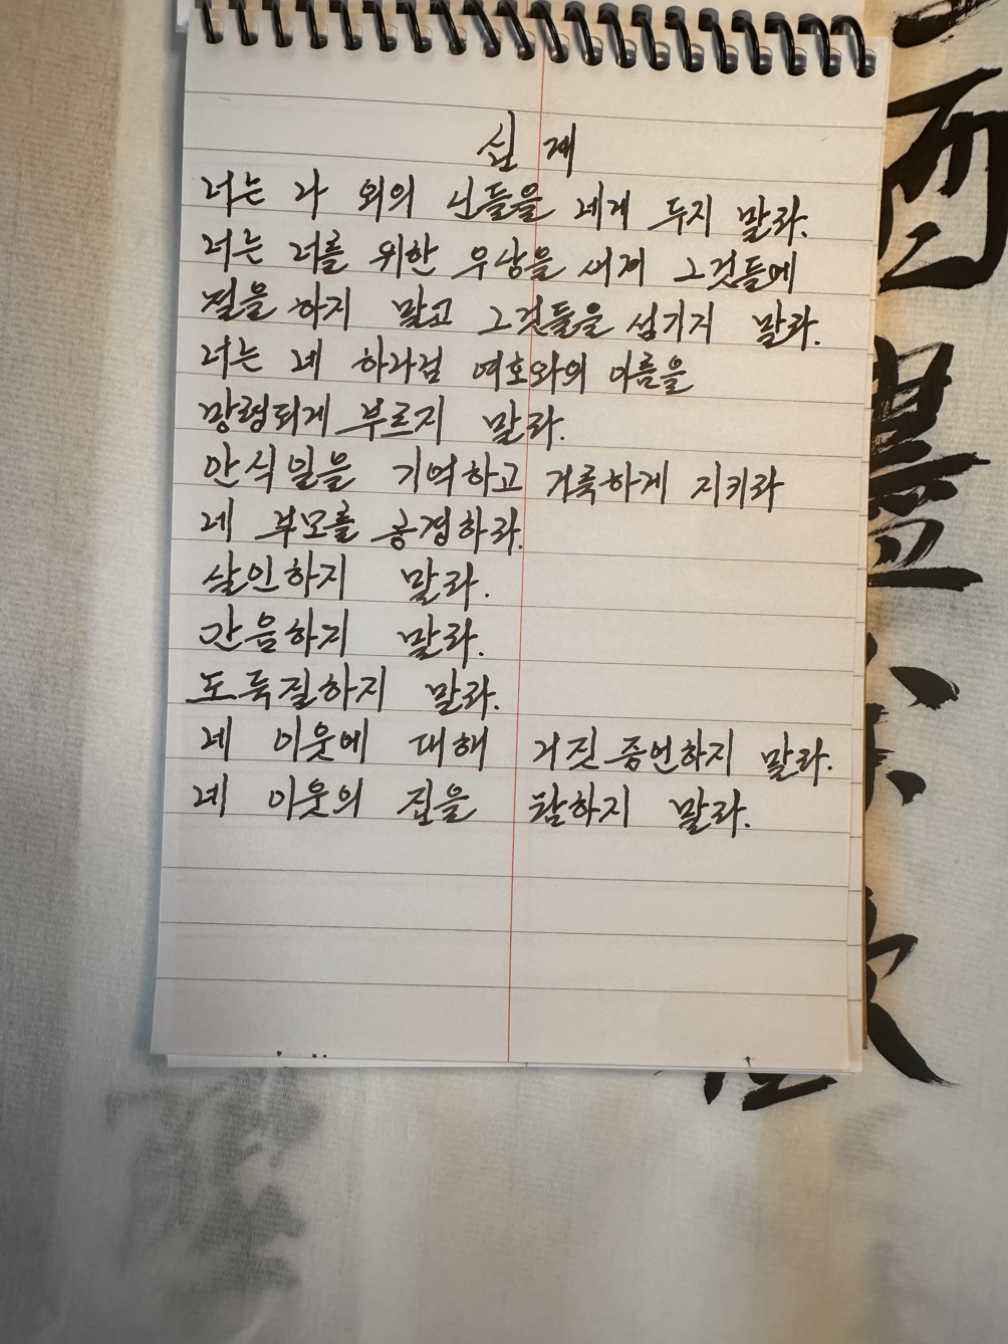 십계
너는 나 외의 신들을 네게 두지 말라.
너는 너를 위한 우상을 새겨 그것들에
절을 하지 말고 그것들을 섬기지 말라.
너는 네 하나님 여호와의 이름을
망령되게 부르지 말라.
안식일을 기억하고 거룩하게 지키라
네 부모를 공경하라.
살인하지 말라.
간음하지 말라.
도둑질하지 말라.
네 이웃에 대해 거짓 증언하지 말라.
네 이웃의 집을 탐하지 말라.
西